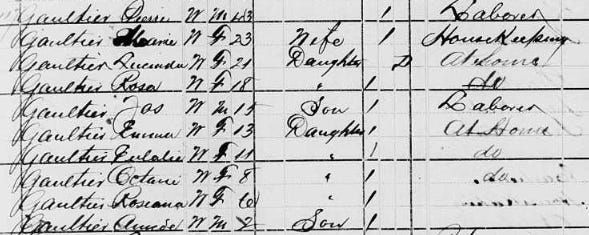 Gaultier Pierre W M 43 1 Laborer
Gaultier Marie W F 23 Wife 1 House Keeping
Gaultier Lucinda W F 21 Daughter D At Home
Gaultier Rosa W F 18 " 1 do
Gaultier Jos W M 15 Son 1 Laborer
Gaultier Emma W F 13 Daughter 1 At Home
Gaultier Eulalie W F 11 " 1 do
Gaultier Octavi W F 8 " 1 do
Gaultier Roseana W F 6 " 1
Gaultier W M 2 Son 1